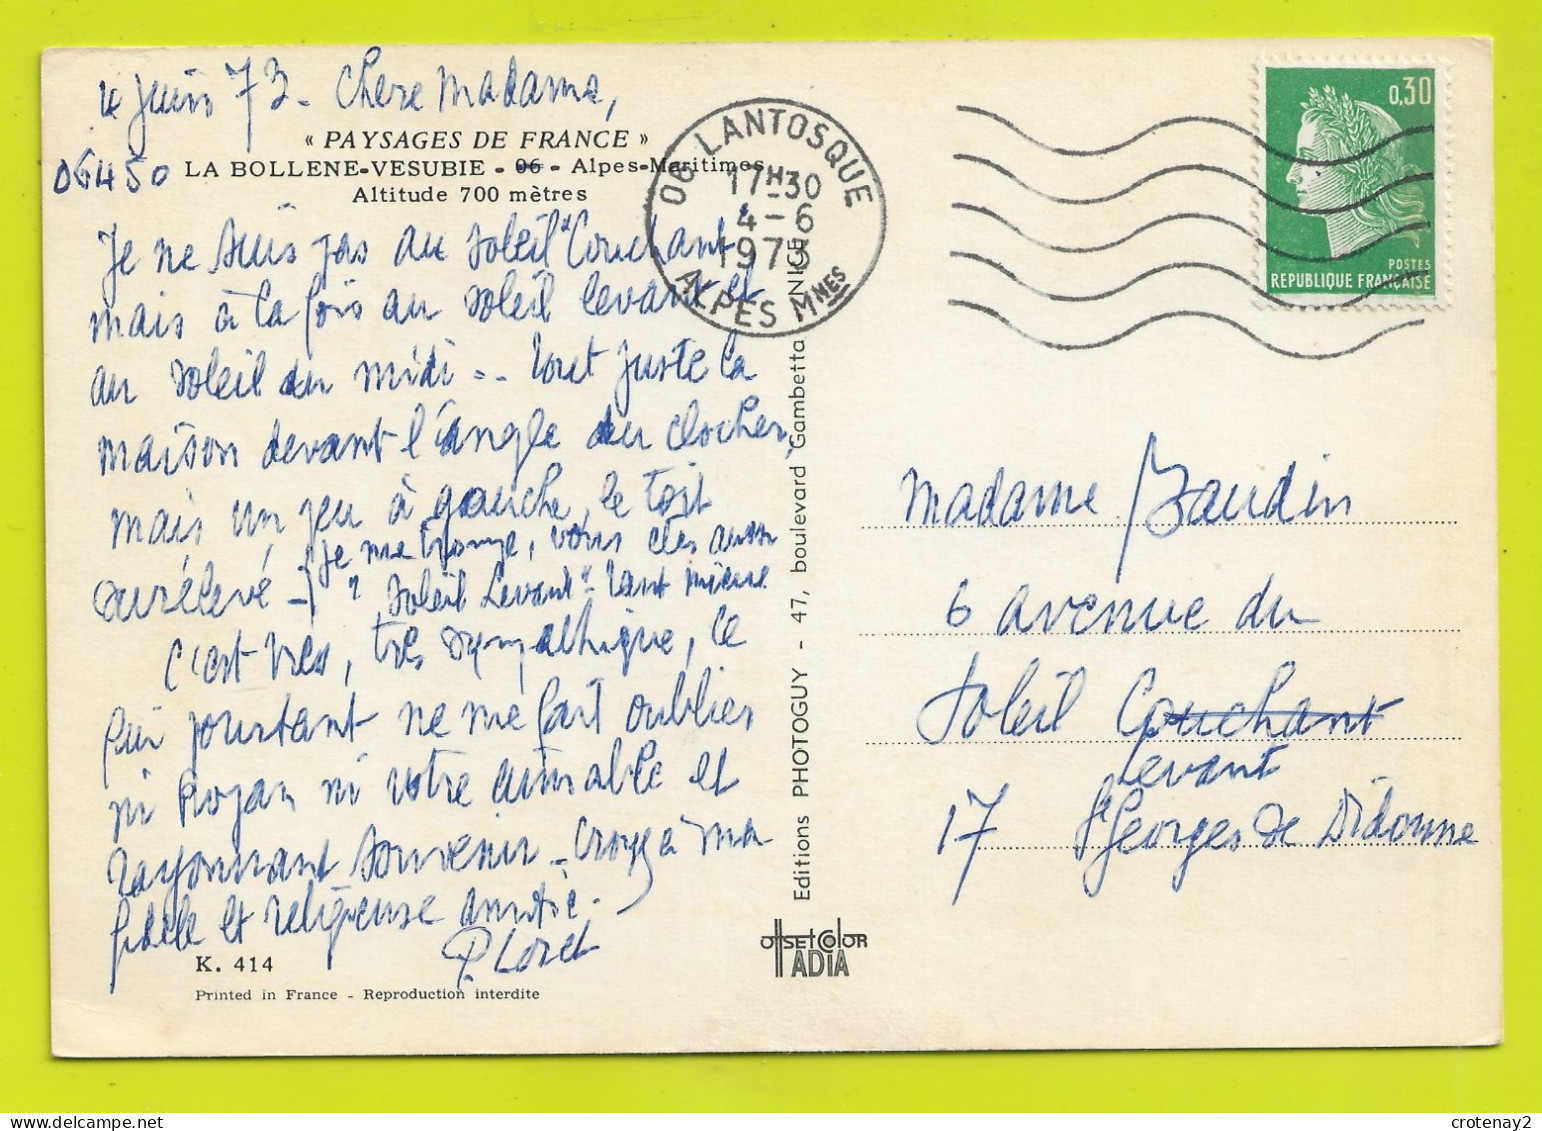 4 juin 73. Chère Madame,
« PAYSAGES DE FRANCE »
06450 LA BOLLENE-VESUBIE - 06 - Alpes-Maritimes
Altitude 700 mètres
Je ne suis pas au "soleil Couchant"
mais à la fois au soleil levant et
au soleil du midi .. tout juste la
maison devant l'angle du clocher,
mais un peu à gauche, le toit
surélevé - je me trompe, vous êtes aussi
"Soleil Levant" - tant mieux
C'est très, très sympathique, ce
qui pourtant ne me fait oublier
ni Royan ni votre aimable et
rayonnant souvenir - Croyez à ma
fidèle et religieuse amitié.
P. Loret
K. 414
Printed in France - Reproduction interdite
Editions PHOTOGUY - 47, boulevard Gambetta NICE
OFFSET COLOR
TADIA
06 LANTOSQUE
17H30
4-6
1973
ALPES MMES
0,30
POSTES
REPUBLIQUE FRANÇAISE
Madame Baudin
6 avenue du
Soleil Couchant
Levant
17 St Georges de Didonne
crotenay2